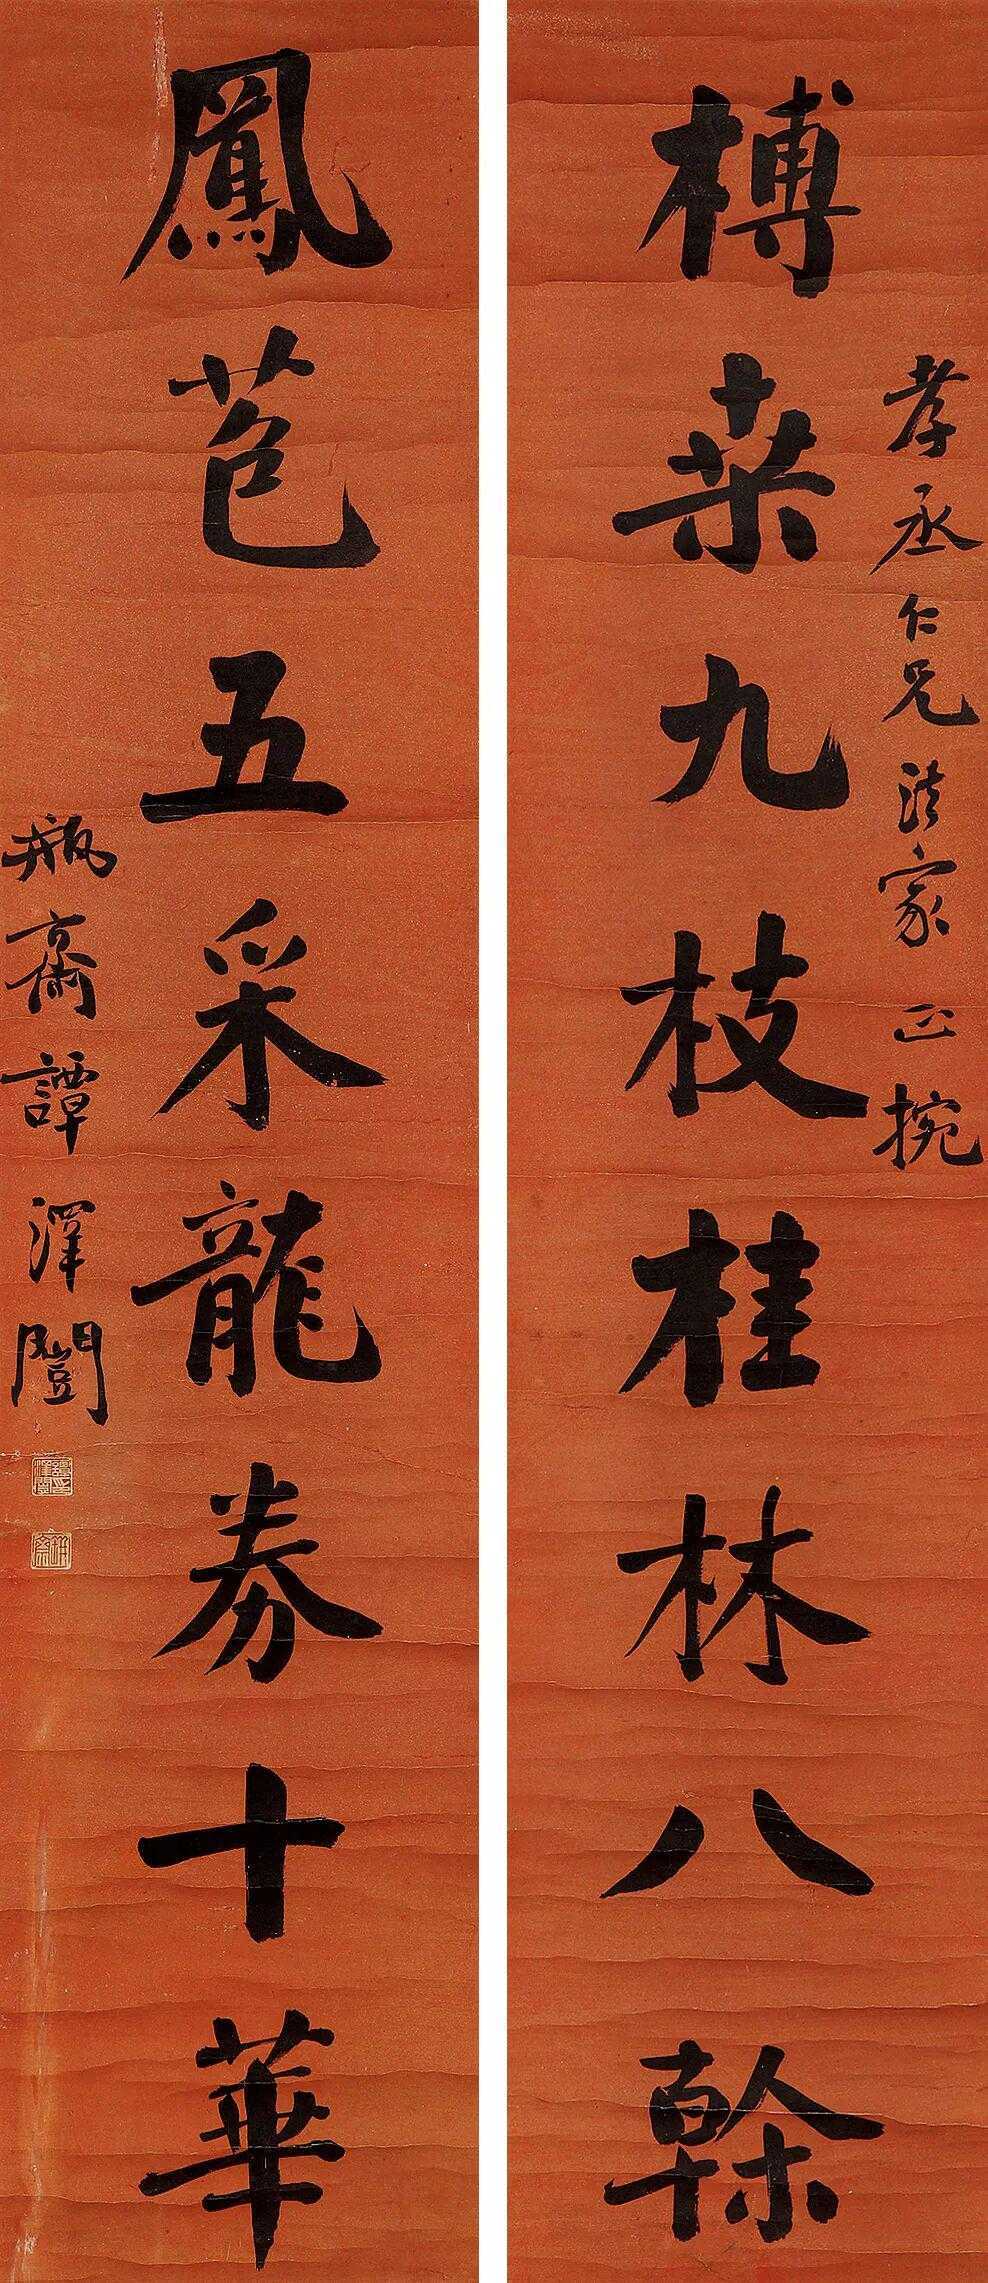 榑桒九枝桂林八榦
孝丞仁兄法家正捥
鳳苞五采龍劵十華
瓶齋譚澤闓